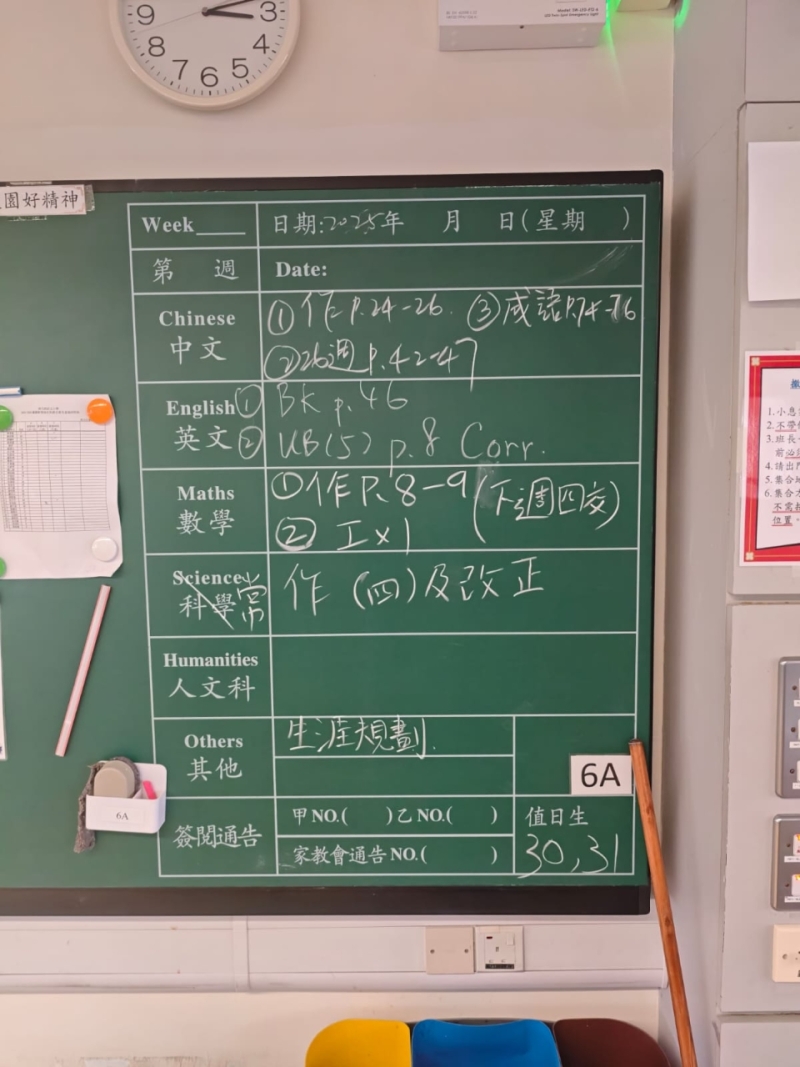 9
3
8
4
7
6
5
園好精神
Week____ 日期:2025年 月 日(星期 )
第 週 Date:
Chinese 中文
①作P.24-26. ③成語P.74-76
②26週P.42-47
English 英文
① BK p.46
② UB(5) p.8 Corr.
Maths 數學
①作P.8-9 (下週四交)
② 工x1
Science 科學 常
作(四)及改正
Humanities
人文科
Others 其他
生涯規劃.
6A
簽閱通告
甲NO.( )乙NO.( )
家教會通告NO.( )
值日生
30,31
6A
1.小息
2.不帶
3.班長
前必
4.請出
5.集合
6.集合
不需
位置。